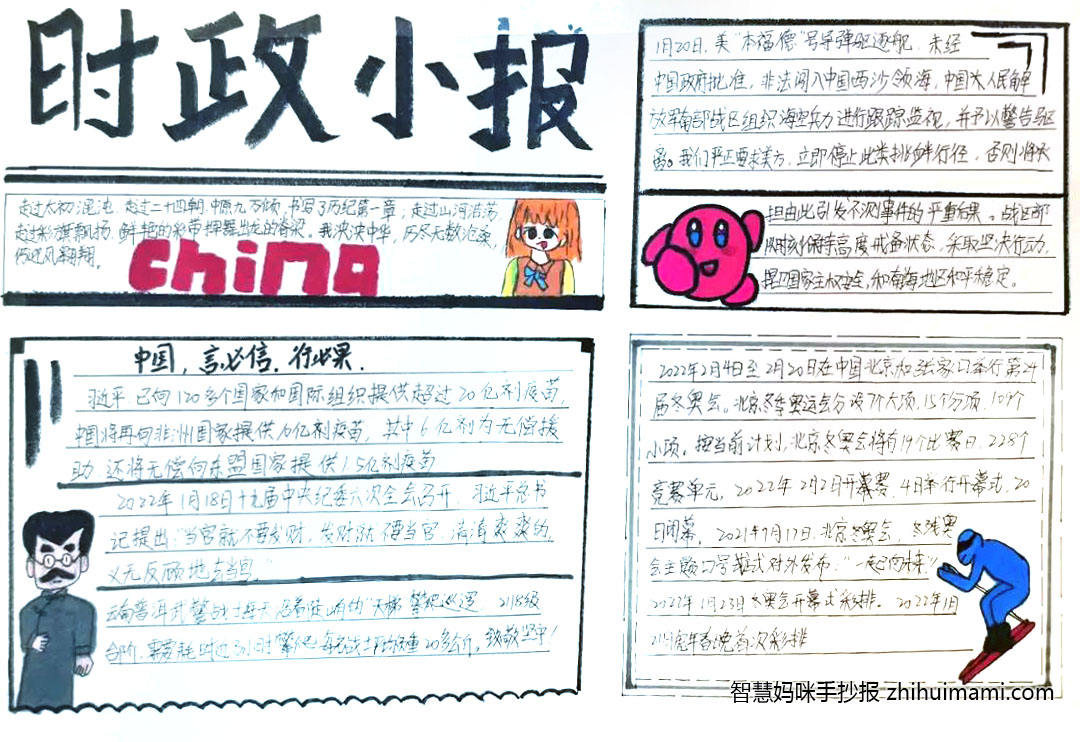 时政小报
走过太初混沌,走过二十四朝,中原九万顷,书写了历纪第一章;走过山河浩荡
走过彩旗飘扬,鲜艳的彩带挥舞出龙的脊梁。我泱泱中华,历尽无数沧桑,
仍迎风翱翔。
China
1月20日,美"本福德"号导弹驱逐舰,未经
中国政府批准,非法闯入中国西沙领海,中国人民解
放军南部战区组织海空兵力进行跟踪监视,并予以警告驱
离。我们严正要求美方,立即停止此类挑衅行径,否则将承
担由此引发不测事件的严重后果。战区部
时刻保持高度戒备状态,采取坚决行动,
国家主权安全,和南海地区和平稳定。
中国,言必信,行必果
习近平,已向120多个国家和国际组织提供超过20亿剂疫苗,
中国将再向非洲国家提供10亿剂疫苗,其中6亿剂为无偿援
助,还将无偿向东盟国家提供1.5亿剂疫苗
2022年1月18日十九届中央纪委六次全会召开,习近平总书
记提出:"当官就不要发财,发财就不要当官,清清爽爽的,
义无反顾地去当官"
云南普洱武警战士每天沿着陡峭的"天梯"攀爬巡逻,2118级
台阶,需要耗时近3小时攀爬,每名战士负重20多公斤,致敬坚守!
2022年2月4日至2月20日在中国北京和张家口举行第24
届冬奥会。北京冬季奥运会分设7个大项,15个分项,109个
小项。按当前计划,北京冬奥会将有19个比赛日,228个
竞赛单元,2022年2月2日开幕赛,4日举行开幕式,20
日闭幕,2021年9月17日,北京冬奥会,冬残奥
会主题口号式对外发布:"一起向未来"
2022年1月23日冬奥会开幕式彩排。2022年1月
21虎年春晚首次彩排
智慧妈咪手抄报 zhihuimami.com